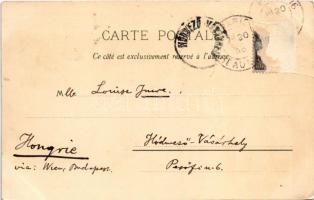 CARTE POSTALE
Ce côté est exclusivement réservé à l'adresse
HÓDMEZŐ VÁSÁRHELY
20
Mlle Louise Imre.
Hongrie
via: Wien, Budapest.
Hódmező-Vásárhely
Petőfi u 6.